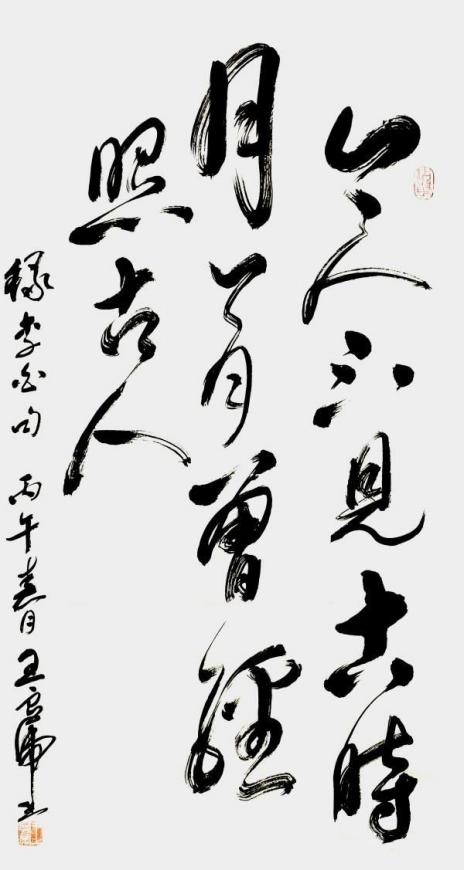 今人不見古時
月今月曾經
照古人
錄李白句 丙午春月王